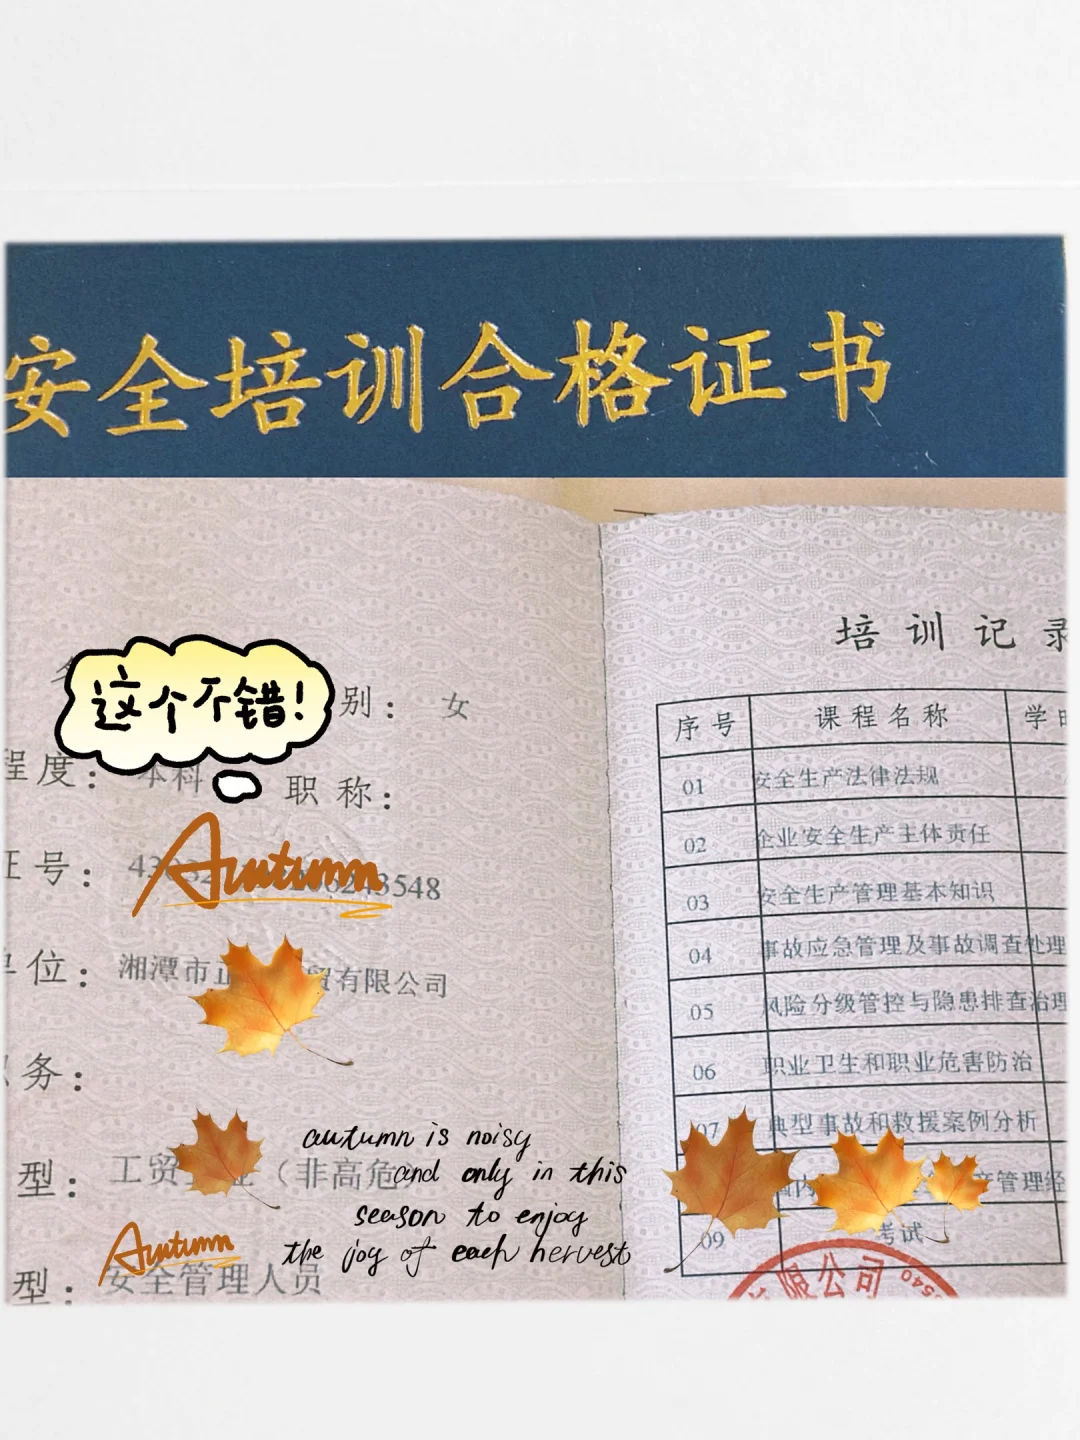 安全培训合格证书
培训记录
这个不错!
别： 女
程度： 本科
职称：
证号： 43
3548
Autumn
单位： 湘潭市
贸有限公司
职务：
型： 工贸
（非高危
autumn is noisy
and only in this
season to enjoy
the joy of each hervest
Autumn
型： 安全管理人员
序号 课程名称 学
01 安全生产法律法规
02 企业安全生产主体责任
03 安全生产管理基本知识
04 事故应急管理及事故调查处理
05 风险分级管控与隐患排查治理
06 职业卫生和职业危害防治
07 典型事故和救援案例分析
管理经
09 考试
限公司